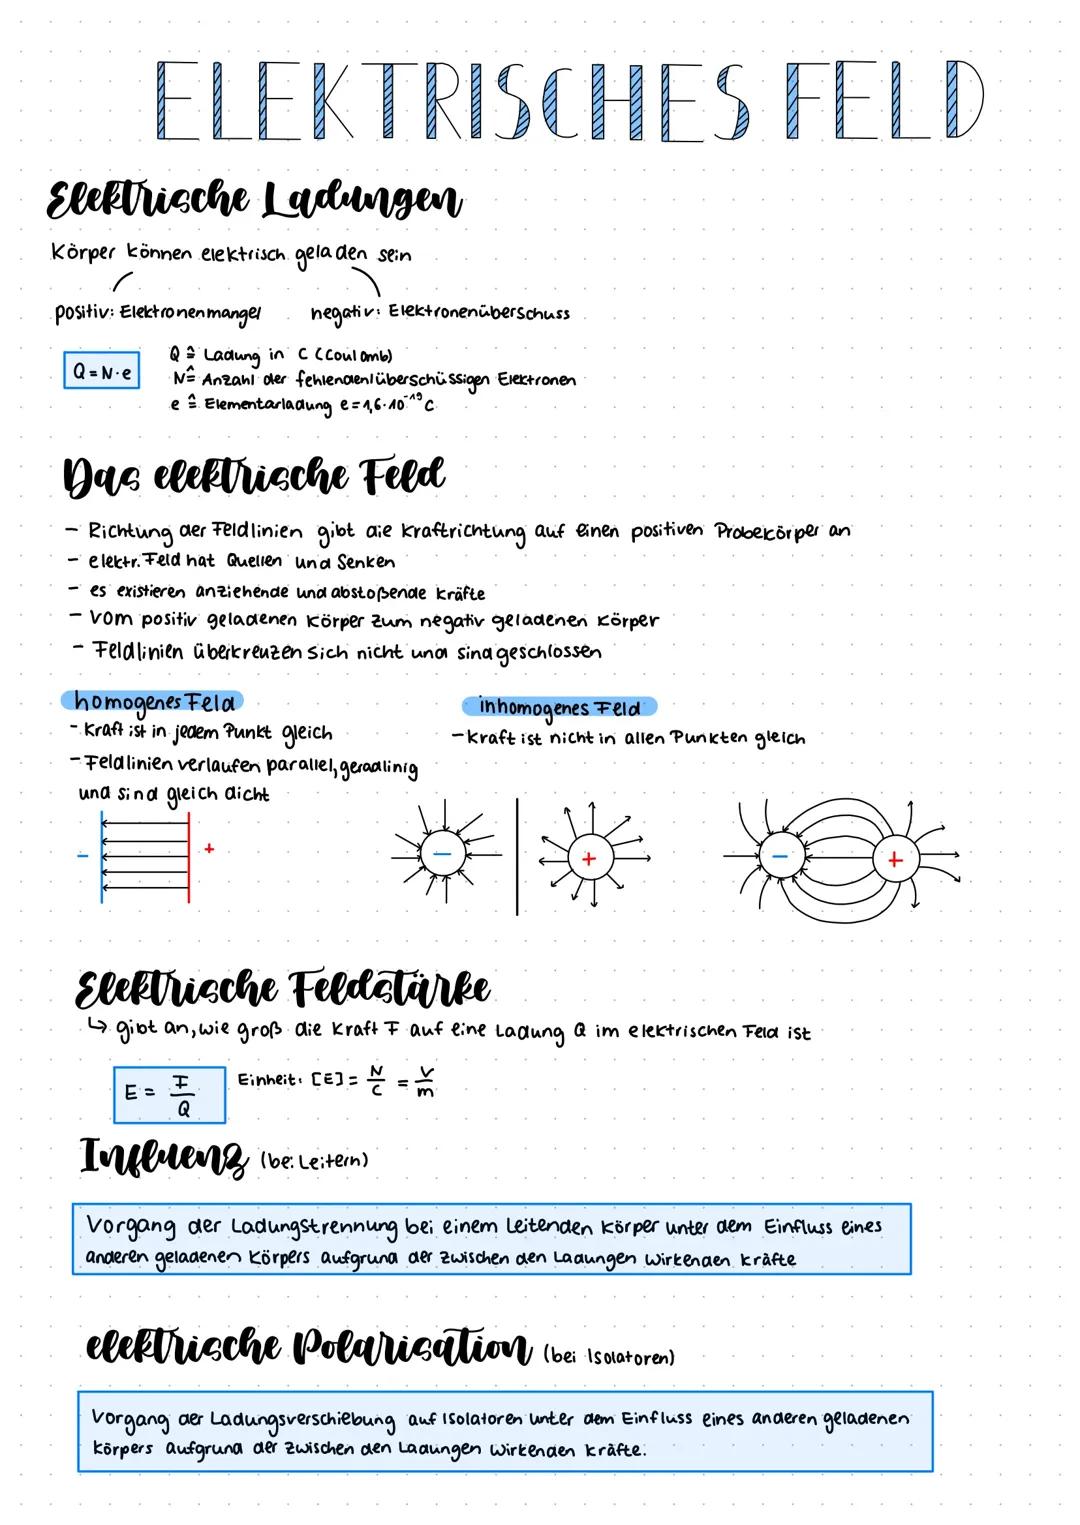 ELEKTRISCHES FELD
Elektrische Ladungen
Körper können elektrisch geladen sein
positiv: Elektronenmangel negativ: Elektronenüberschuss
Q = N·e
Q ≙ Ladung in C (Coulomb)
N ≙ Anzahl der fehlenden/überschüssigen Elektronen
e ≙ Elementarladung e = 1,6·10⁻¹⁹ C
Das elektrische Feld
- Richtung der Feldlinien gibt die Kraftrichtung auf einen positiven Probekörper an
- elektr. Feld hat Quellen und Senken
- es existieren anziehende und abstoßende Kräfte
- vom positiv geladenen Körper zum negativ geladenen Körper
- Feldlinien überkreuzen sich nicht und sind geschlossen
homogenes Feld
- Kraft ist in jedem Punkt gleich
- Feldlinien verlaufen parallel, geradlinig
und sind gleich dicht
inhomogenes Feld
- Kraft ist nicht in allen Punkten gleich
- +
- + - +
Elektrische Feldstärke
↳ gibt an, wie groß die Kraft F auf eine Ladung Q im elektrischen Feld ist
E = F/Q Einheit: [E] = N/C = V/m
Influenz (bei Leitern)
Vorgang der Ladungstrennung bei einem leitenden Körper unter dem Einfluss eines
anderen geladenen Körpers aufgrund der zwischen den Ladungen wirkenden Kräfte
elektrische Polarisation (bei Isolatoren)
Vorgang der Ladungsverschiebung auf Isolatoren unter dem Einfluss eines anderen geladenen
Körpers aufgrund der zwischen den Ladungen wirkenden Kräfte.